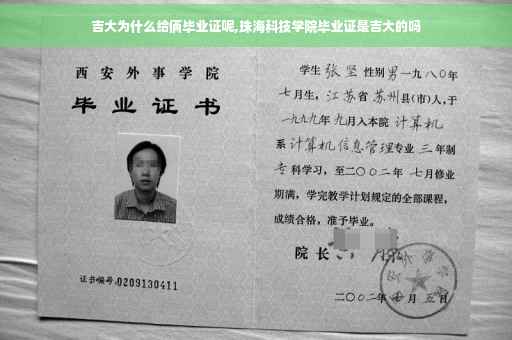 吉大为什么给俩毕业证呢,珠海科技学院毕业证是吉大的吗
西安外事学院
毕业证书
证书编号:0209130411
学生 张坚 性别 男 一九八〇年
七月生, 江苏省 苏州 县(市)人,于
一九九九年 九月入本院 计算机
系 计算机信息管理 专业 三 年制
专 科学习, 至二〇〇二年 七月修业
期满, 学完教学计划规定的全部课程,
成绩合格, 准予毕业。
院长
二〇〇二年 七 月 五 日